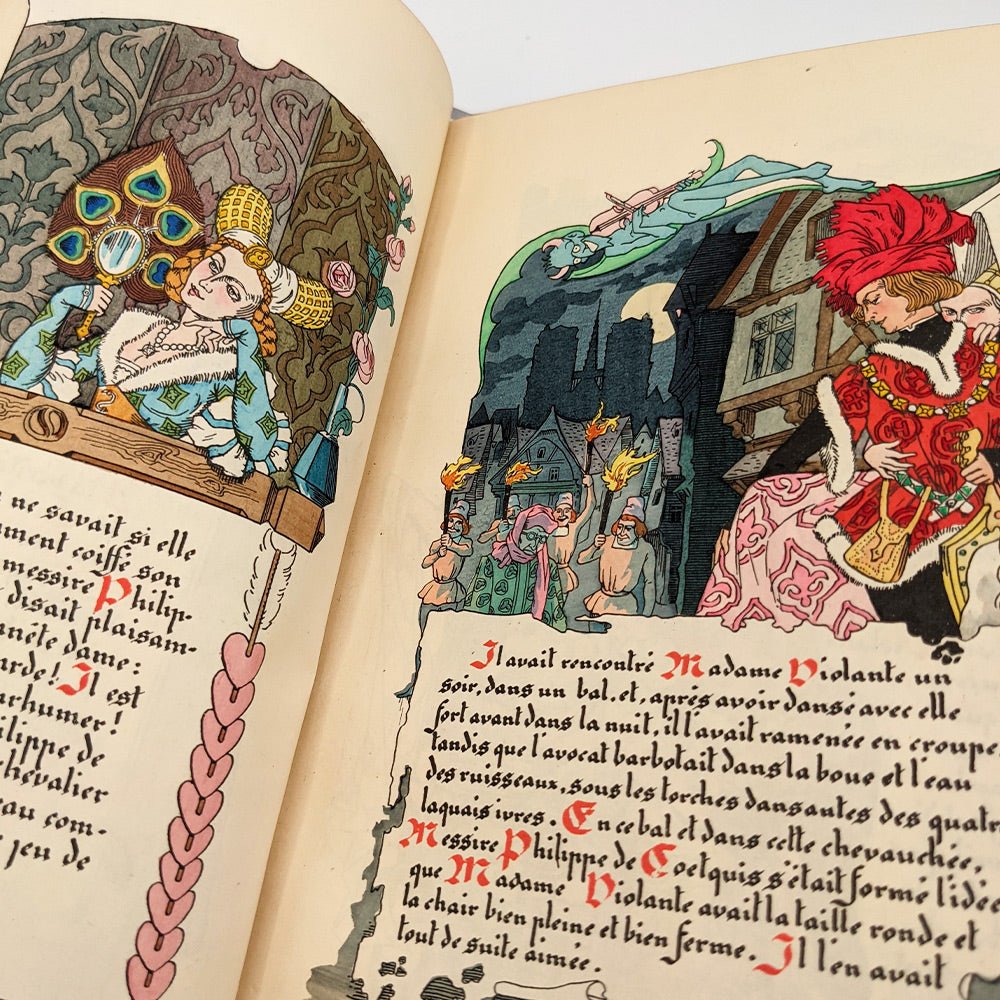 ne savait si elle
ment coiffé son
messire Philip-
disait plaisam-
nête dame:
arde! Il est
arhumer!
ilippe de
chevalier
eau com-
jeu de
Il avait rencontré Madame Violante un
soir, dans un bal, et, après avoir dansé avec elle
fort avant dans la nuit, il l'avait ramenée en croupe,
tandis que l'avocat barbotait dans la boue et l'eau
des ruisseaux, sous les torches dansantes des quatr
laquais ivres. En ce bal et dans cette chevauchée,
Messire Philippe de Coetquis s'était formé l'idée
que Madame Violante avait la taille ronde et
la chair bien pleine et bien ferme. Il l'en avait
tout de suite aimée.